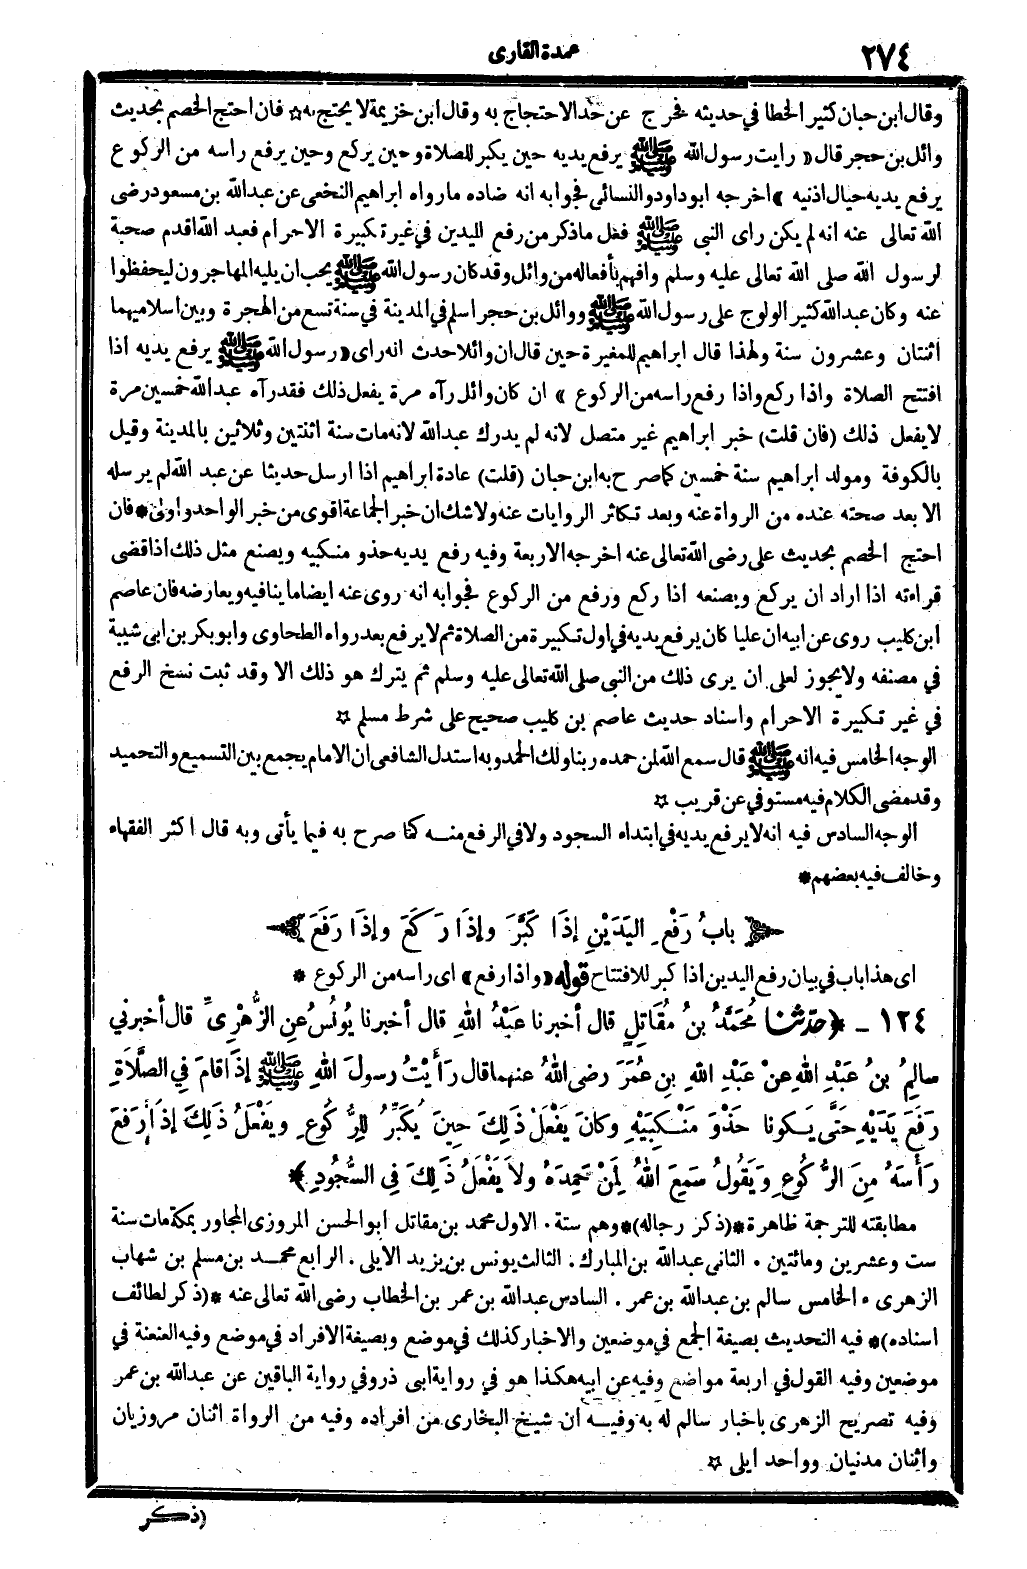 ٢٧٤
عمدة القارى
وقال ابن حبان كثير الخطا في حديثه فخرج عن حد الاحتجاج به وقال ابن خزيمة لا يحتج به ☆ فان احتج الخصم بحديث
وائل بن حجر قال « رايت رسول الله ﷺ يرفع يديه حين يكبر للصلاة وحين يركع وحين يرفع راسه من الركوع
يرفع يديه حيال اذنيه » اخرجه ابو داود والنسائى فجوابه انه ضاده ما رواه ابراهيم النخعى عن عبد الله بن مسعود رضى
الله تعالى عنه انه لم يكن راى النبى ﷺ فعل ماذكر من رفع لليدين في غيرة تكبيرة الاحرام فعبد الله اقدم صحبة
لرسول الله صلى الله تعالى عليه وسلم وافهم بأفعاله من وائل وقد كان رسول الله ﷺ يحب ان يليه المهاجرون ليحفظوا
عنه وكان عبد الله كثير الولوج على رسول الله ﷺ ووائل بن حجر اسلم في المدينة في سنة تسع من الهجرة وبين اسلاميهما
اثنتان وعشرون سنة ولهذا قال ابراهيم للمغيرة حين قال ان وائلا حدث انه راى « رسول الله ﷺ يرفع يديه اذا
افتتح الصلاة واذا ركع واذا رفع راسه من الركوع » ان كان وائل رآه مرة يفعل ذلك فقد رآه عبد الله خمسين مرة
لا يفعل ذلك (فان قلت) خبر ابراهيم غير متصل لانه لم يدرك عبد الله لانه مات سنة اثنتين وثلاثين بالمدينة وقيل
بالكوفة ومولد ابراهيم سنة خمسين كما صرح به ابن حبان (قلت) عادة ابراهيم اذا ارسل حديثا عن عبد الله لم يرسله
الا بعد صحته عنده من الرواة عنه وبعد تكاثر الروايات عنه ولا شك ان خبر الجماعة اقوى من خبر الواحد واولى * فان
احتج الخصم بحديث على رضى الله تعالى عنه اخرجه الاربعة وفيه رفع يديه حذو منكبيه ويصنع مثل ذلك اذا قضى
قراءته اذا اراد ان يركع ويصنعه اذا ركع ورفع من الركوع فجوابه انه روى عنه ايضا ما ينافيه ويعارضه فان عاصم
ابن كليب روى عن ابيه ان عليا كان يرفع يديه في اول تكبيرة من الصلاة ثم لا يرفع بعد رواه الطحاوى وابو بكر بن ابى شيبة
في مصنفه ولا يجوز لعلى ان يرى ذلك من النبى صلى الله تعالى عليه وسلم ثم يترك هو ذلك الا وقد ثبت نسخ الرفع
في غير تكبيرة الاحرام واسناد حديث عاصم بن كليب صحيح على شرط مسلم ☆
الوجه الخامس فيه انه ﷺ قال سمع الله لمن حمده ربنا ولك الحمد وبه استدل الشافعى ان الامام يجمع بين التسميع والتحميد
وقد مضى الكلام فيه مستوفي عن قريب ☆
الوجه السادس فيه انه لا يرفع يديه في ابتداء السجود ولا في الرفع منه كما صرح به فيما يأتى وبه قال اكثر الفقهاء
وخالف فيه بعضهم *
﴿ بابُ رَفْعِ اليَدَيْنِ إذَا كَبَّرَ وإذَا رَكَعَ وإذَا رَفَعَ ﴾
اى هذا باب في بيان رفع اليدين اذا كبر للافتتاح قوله « واذا رفع » اى راسه من الركوع *
١٢٤ - ﴿ حدثنا مُحَمَّدُ بنُ مُقَاتِلٍ قال أخبرنا عَبْدُ اللهِ قال أخبرنا يُونُسُ عنِ الزُّهْرِىِّ قال أخبرني
سالِمُ بنُ عَبْدِ اللهِ عنْ عَبْدِ اللهِ بنِ عُمَرَ رضى اللهُ عنهما قال رَأَيْتُ رسولَ اللهِ ﷺ إذَا قامَ فِي الصَّلَاةِ
رَفَعَ يَدَيْهِ حَتَّى يَكونا حَذْوَ مَنْكِبَيْهِ وكانَ يَفْعَلُ ذَلِكَ حِينَ يُكَبِّرُ لِلرُّكُوعِ ويَفْعَلُ ذَلِكَ إذَا رَفَعَ
رَأْسَهُ مِنَ الرُّكُوعِ وَيَقُولُ سَمِعَ اللهُ لِمَنْ حَمِدَهُ ولاَ يَفْعَلُ ذَلِكَ فِي السُّجُودِ ﴾ *
مطابقته للترجمة ظاهرة * (ذكر رجاله) * وهم ستة . الاول محمد بن مقاتل ابو الحسن المروزى المجاور بمكة مات سنة
ست وعشرين ومائتين . الثانى عبد الله بن المبارك . الثالث يونس بن يزيد الايلى . الرابع محمد بن مسلم بن شهاب
الزهرى . الخامس سالم بن عبد الله بن عمر . السادس عبد الله بن عمر بن الخطاب رضى الله تعالى عنه * (ذكر لطائف
اسناده) * فيه التحديث بصيغة الجمع في موضعين والاخبار كذلك في موضع وبصيغة الافراد في موضع وفيه العنعنة في
موضعين وفيه القول في اربعة مواضع وفيه عن ابيه هكذا هو في رواية ابى ذر وفي رواية الباقين عن عبد الله بن عمر
وفيه تصريح الزهرى باخبار سالم له به وفيه ان شيخ البخارى من افراده وفيه من الرواة اثنان مروزيان
واثنان مدنيان وواحد ايلى ☆
(ذكر